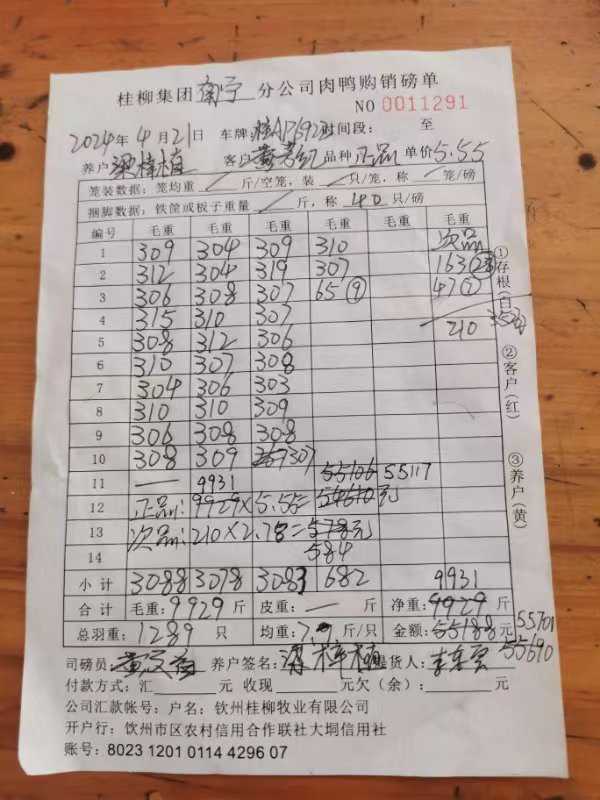 桂柳集团南宁分公司肉鸭购销磅单
NO 0011291
2024年4月21日 车牌: 时间段: 至
养户 梁梓植 客户 品种 正品 单价 5.55
笼装数据: 笼均重 / 斤/空笼, 装 / 只/笼, 称 / 笼/磅
捆脚数据: 铁筐或板子重量 / 斤, 称 40 只/磅
编号 毛重 毛重 毛重 毛重 毛重 毛重
1 309 304 309 310 次品
2 312 304 319 307 163
3 306 308 307 65⑨ 47⑦
4 315 310 307 210
5 308 312 306
6 310 307 308
7 304 306 303
8 310 310 309
9 306 308 308
10 308 309 307
55106 55117
11 — 9931
12 正品: 9929×5.55= 元
13 次品: 210×2.78=578元
14 584
小计 3088 3078 3083 682 9931
合计 毛重: 9929斤 皮重: — 斤 净重: 9929斤
总羽重: 1289 只 均重: 7. 斤/只 金额: 55188元 55701
55690
司磅员: 养户签名: 梁梓植 提货人:
付款方式: 汇 元 收现 元欠(余): 元
公司汇款帐号: 户名: 钦州桂柳牧业有限公司
开户行: 钦州市区农村信用合作联社大垌信用社
账号: 8023 1201 0114 4296 07
①存根(白)
②客户(红)
③养户(黄)